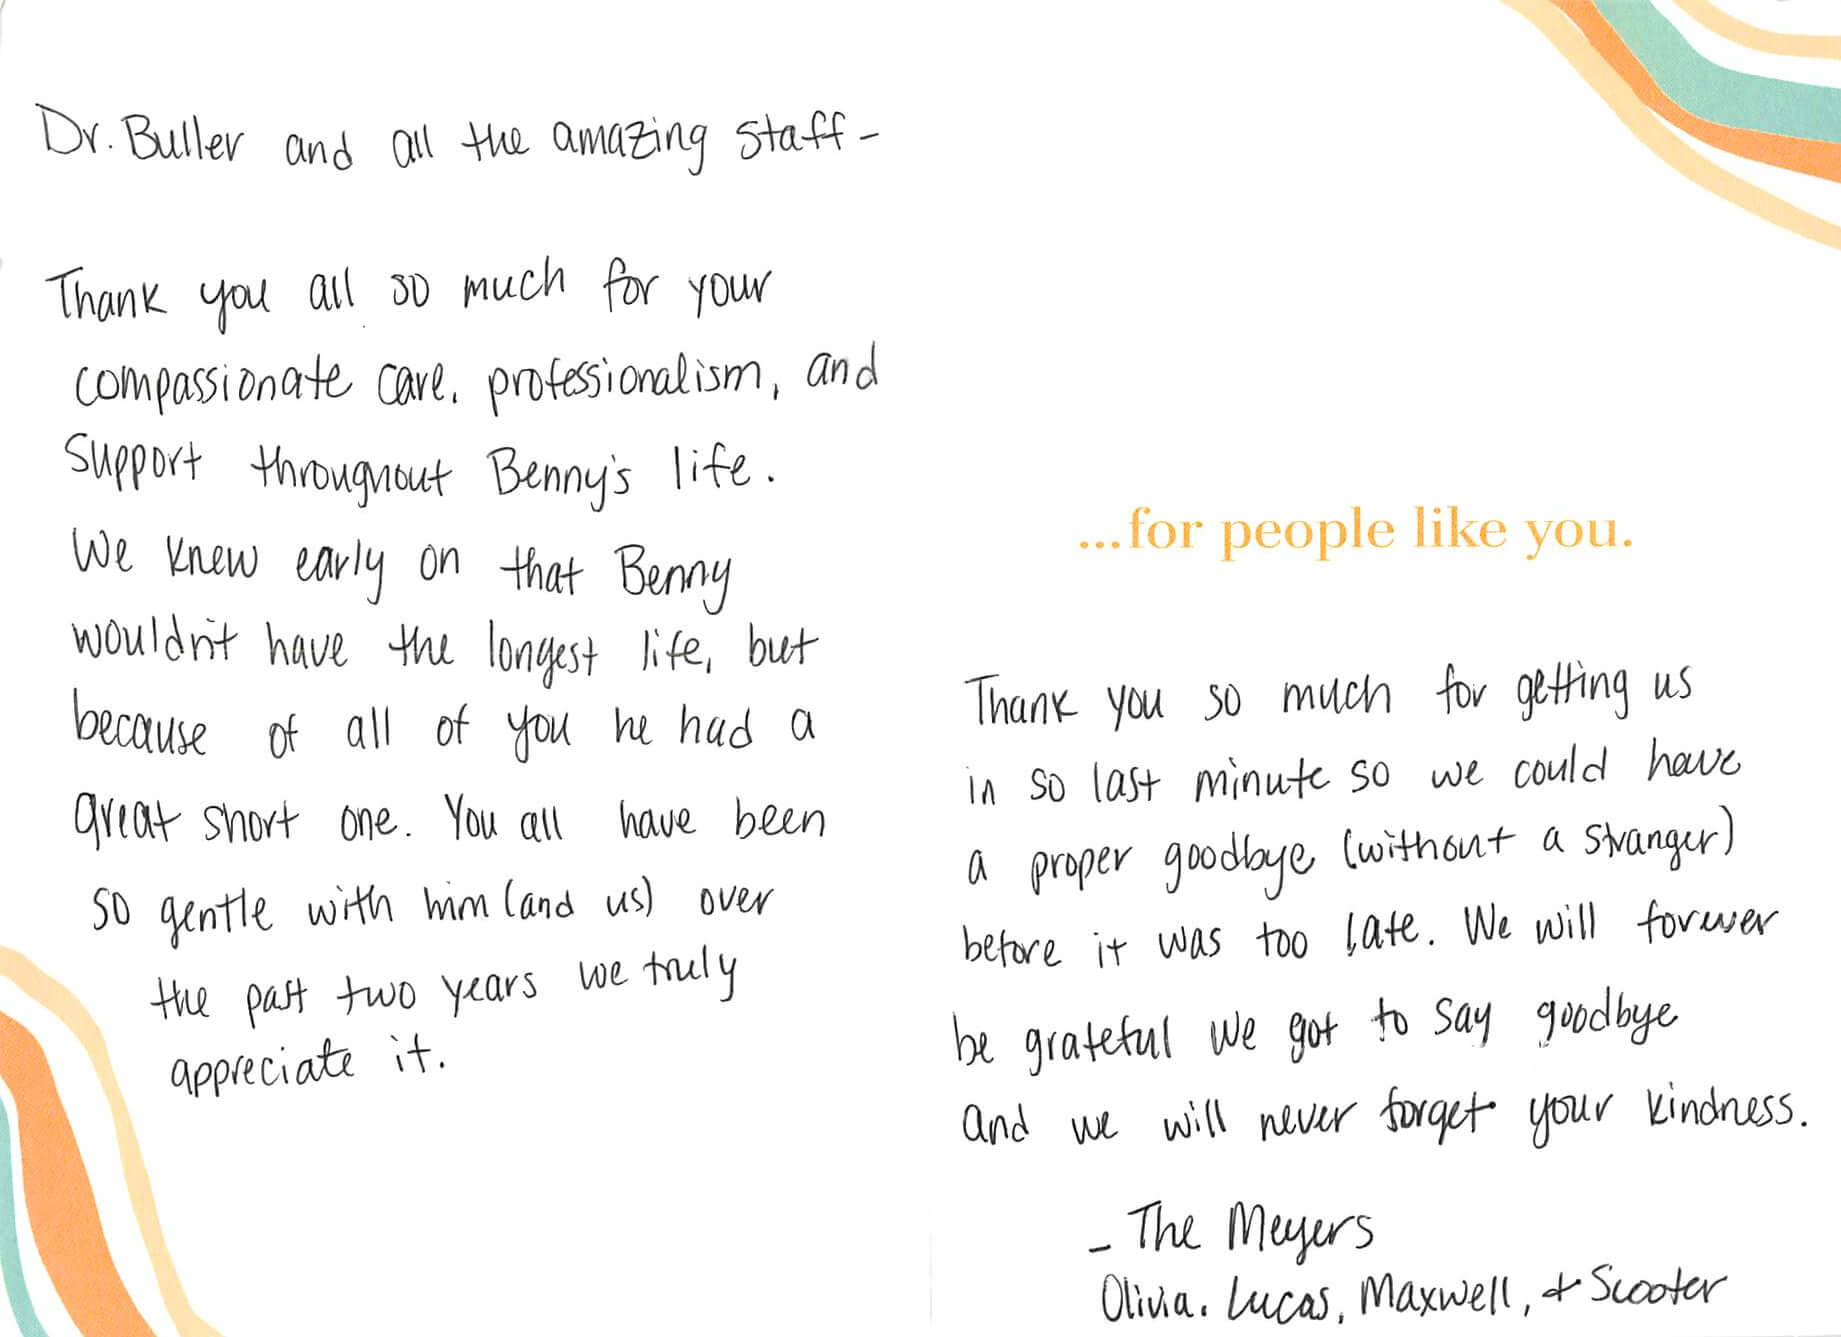 Dr. Buller and all the amazing staff -
Thank you all so much for your
compassionate care, professionalism, and
support throughout Benny's life.
We knew early on that Benny
wouldn't have the longest life, but
because of all of you he had a
great short one. You all have been
so gentle with him (and us) over
the past two years we truly
appreciate it.
...for people like you.
Thank you so much for getting us
in so last minute so we could have
a proper goodbye (without a stranger)
before it was too late. We will forever
be grateful we got to say goodbye
and we will never forget your kindness.
- The Meyers
Olivia, Lucas, Maxwell, + Scooter